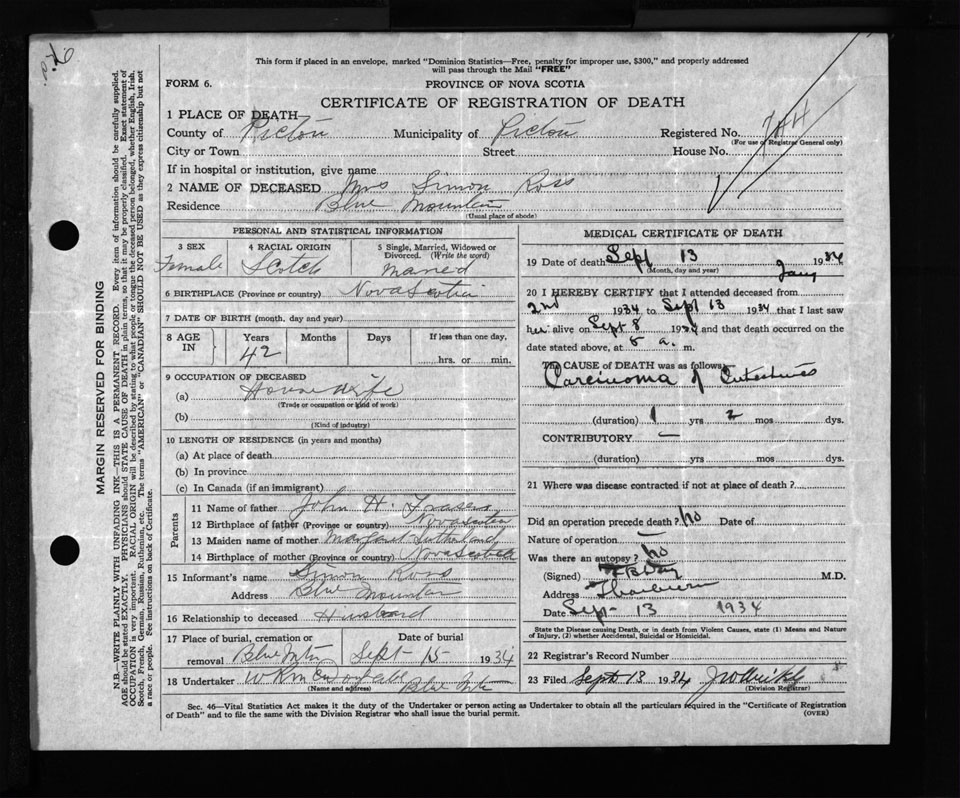 This form if placed in an envelope, marked "Dominion Statistics—Free, penalty for improper use, $300," and properly addressed
will pass through the Mail "FREE"
FORM 6.
PROVINCE OF NOVA SCOTIA
CERTIFICATE OF REGISTRATION OF DEATH
1 PLACE OF DEATH
County of Pictou Municipality of Pictou Registered No.
(For use of Registrar General only)
City or Town Street House No.
If in hospital or institution, give name
2 NAME OF DECEASED Mrs Simon Ross
Residence Blue Mountain
(Usual place of abode)
PERSONAL AND STATISTICAL INFORMATION
3 SEX 4 RACIAL ORIGIN 5 Single, Married, Widowed or
Divorced. (Write the word)
Female Scotch Married
6 BIRTHPLACE (Province or country) Nova Scotia
7 DATE OF BIRTH (month, day and year)
8 AGE IN Years Months Days If less than one day,
42 hrs. or min.
9 OCCUPATION OF DECEASED
(a) Housewife
(Trade or occupation or kind of work)
(b)
(Kind of industry)
10 LENGTH OF RESIDENCE (in years and months)
(a) At place of death
(b) In province
(c) In Canada (if an immigrant)
Parents
11 Name of father John H. Fraser
12 Birthplace of father (Province or country) Nova Scotia
13 Maiden name of mother Margaret Sutherland
14 Birthplace of mother (Province or country) Nova Scotia
15 Informant's name Simon Ross
Address Blue Mountain
16 Relationship to deceased Husband
17 Place of burial, cremation or Date of burial
removal Blue Mtn Sept 15 1934
18 Undertaker Blue Mtn
(Name and address)
MEDICAL CERTIFICATE OF DEATH
19 Date of death Sept 13 1934
(Month, day and year)
Jany
20 I HEREBY CERTIFY that I attended deceased from
2nd 1934 to Sept 13 1934 that I last saw
her alive on Sept 8 1934 and that death occurred on
date stated above, at a. m.
The CAUSE OF DEATH was as follows:
Carcinoma of Intestines
(duration) 1 yrs 2 mos dys.
CONTRIBUTORY —
(duration) yrs mos dys.
21 Where was disease contracted if not at place of death?
Did an operation precede death? No Date of
Nature of operation —
Was there an autopsy? No
(Signed) M.D.
Address Thorburn
Date Sept 13 1934
State the Disease causing Death, or in death from Violent Causes, state (1) Means and Nature
of Injury, (2) whether Accidental, Suicidal or Homicidal.
22 Registrar's Record Number
23 Filed Sept 13 1934
(Division Registrar)
Sec. 46—Vital Statistics Act makes it the duty of the Undertaker or person acting as Undertaker to obtain all the particulars required in the "Certificate of Registration
of Death" and to file the same with the Division Registrar who shall issue the burial permit.
(OVER)
MARGIN RESERVED FOR BINDING
N.B.—WRITE PLAINLY WITH UNFADING INK—THIS IS A PERMANENT RECORD. Every item of information should be carefully supplied.
AGE should be stated EXACTLY. PHYSICIANS should STATE CAUSE OF DEATH in plain terms, so that it may be properly classified. Exact statement of
OCCUPATION is very important. RACIAL ORIGIN will be described by stating to what people or tongue the deceased person belonged, whether English, Irish,
Scotch, French, German, Russian, Ruthenian, etc. The terms "AMERICAN" or "CANADIAN" SHOULD NOT BE USED as they express citizenship but not
a race or people. See instructions on back of Certificate.